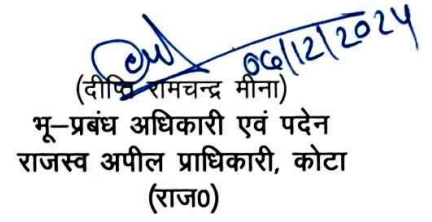 06/12/2024
(दीप्ति रामचन्द्र मीना)
भू–प्रबंध अधिकारी एवं पदेन
राजस्व अपील प्राधिकारी, कोटा
(राज0)